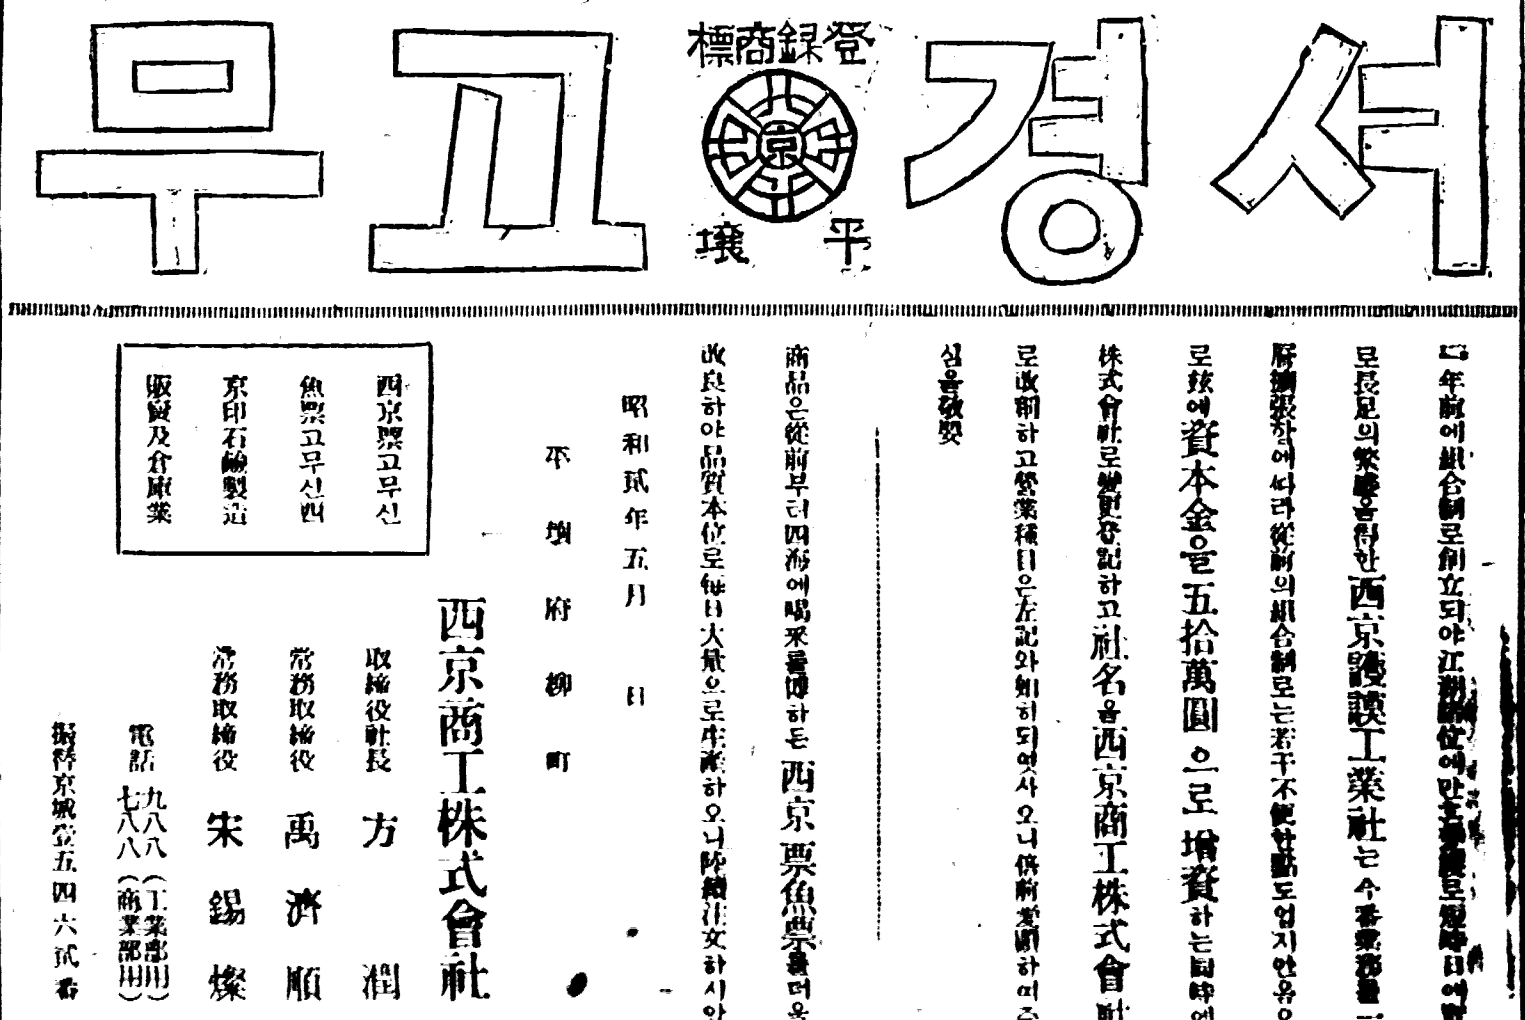 서경고무
登錄商標
京
平壤
年前에組合制로創立되야江湖諸位에
로長足의繁盛을得한西京護謨工業社는今番業務를
擴張함에따라從前의組合制로는若干不便한點도업지안음으
로玆에資本金을五拾萬圓으로增資하는同時에
株式會社로變更登記하고社名을西京商工株式會社
로改稱하고營業種目은左記와如히되엿사오니倍前愛顧하
심을敬要
商品은從前부터四海에喝采를博하든西京票魚票를더욱
改良하야品質本位로每日大量으로生産하오니陸續注文하시압
昭和貳年五月 日
平壤府柳町
西京商工株式會社
取締役社長 方 潤
常務取締役 禹濟順
常務取締役 宋錫燦
電話 九八八(工業部用)
七八八(商業部用)
振替京城壹五四六貳番
西京票고무신
魚票고무신
京印石鹼製造
販賣及倉庫業